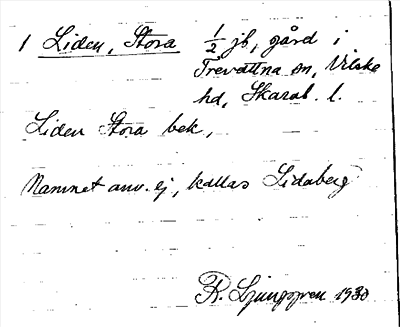 1 Liden, Stora 1/2 jb, gård i
Trevattna sn, Vilske
hd, Skarab. l.
Liden Stora bek.,
Namnet anv. ej, kallas Lidaberg
R. Ljunggren 1930